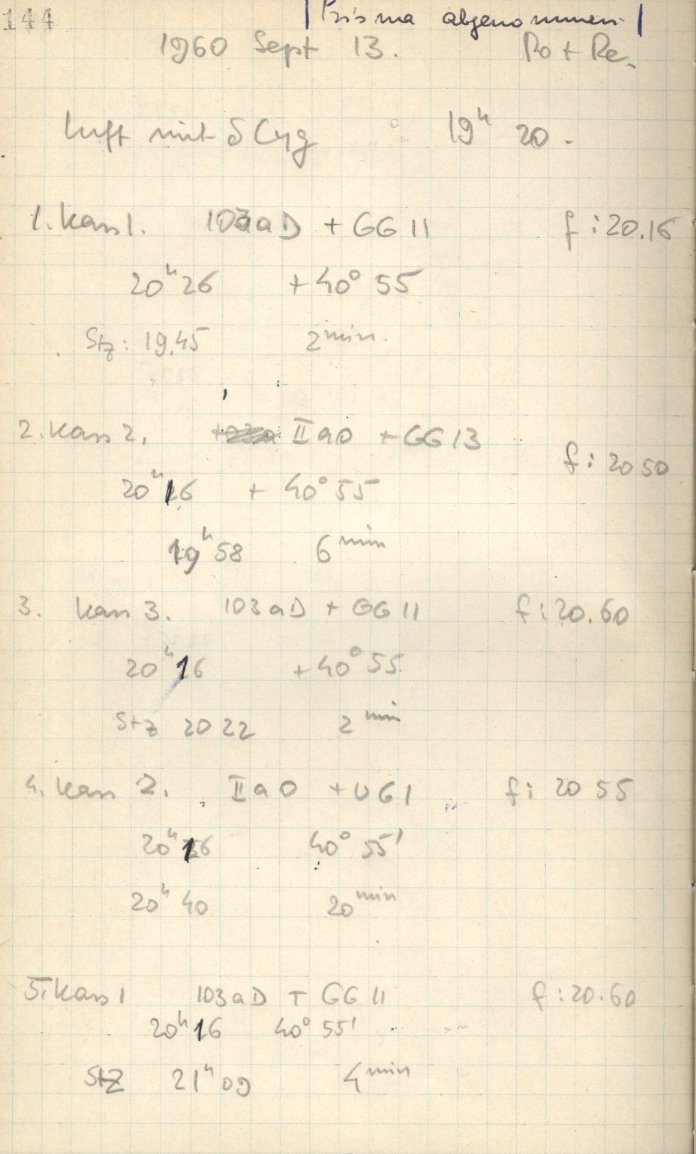 144
|Prisma abgenommen|
1960 Sept 13. Ro + Re.
Luft mit δ Cyg 19ʰ 20.
1. Kass 1. 103aD + GG 11 f: 20.16
20ʰ26 +40° 55
Stz: 19.45 2ᵐⁱⁿ.
2. Kass 2. IIaO + GG 13
f: 20 50
20ʰ16 + 40° 55
19ʰ58 6ᵐⁱⁿ
3. Kass 3. 103aD + GG 11 f: 20.60
20ʰ16 +40° 55
Stz 20 22 2ᵐⁱⁿ
4. Kass 2. IIaO + UG1 f: 20 55
20ʰ16 40° 55'
20ʰ 40 20ᵐⁱⁿ
5. Kass 1 103aD + GG 11 f: 20.60
20ʰ16 40° 55'
Stz 21ʰ 09 4ᵐⁱⁿ